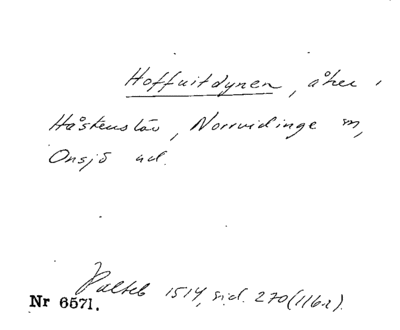 Hoffuitdynen, åker i
Håstenslöv, Norrvidinge sn,
Onsjö hd.
Palteb 1514, sid. 270 (116r).
Nr 6571.